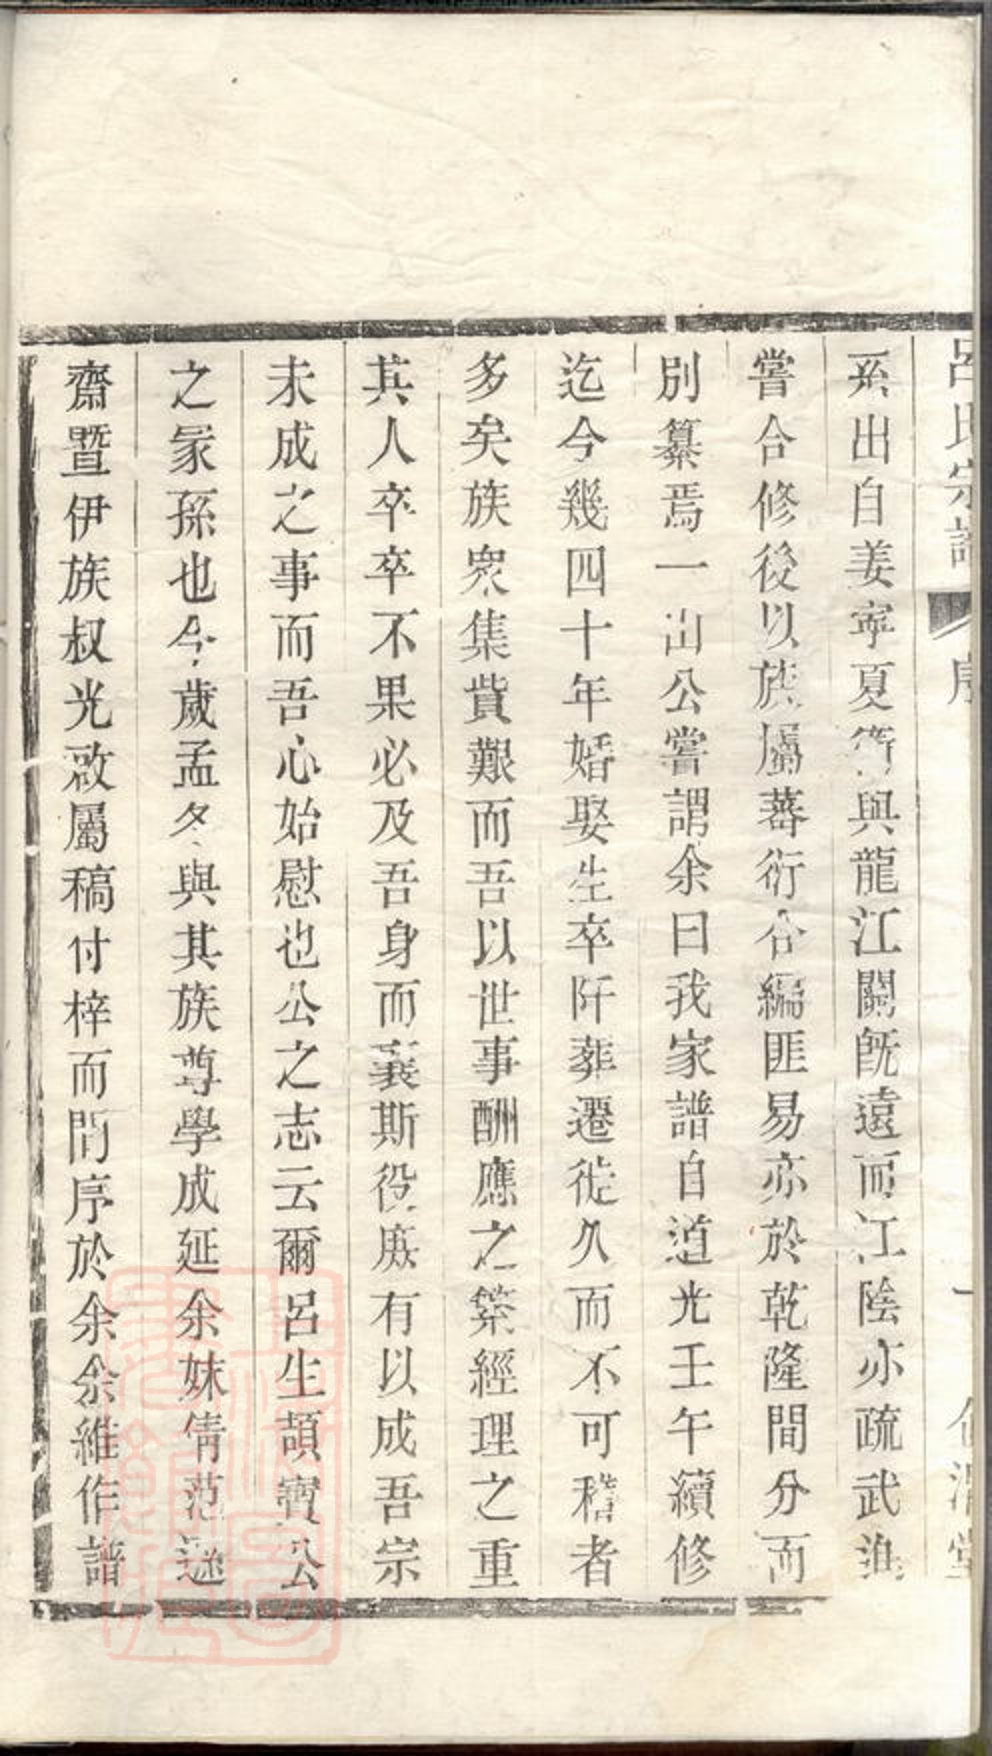 呂氏宗譜 序 一
系出自姜寧夏衛與龍江關旣遠而江陰亦疏武進
嘗合修後以族屬蕃衍合編匪易亦於乾隆間分而
別纂焉一出公嘗謂余曰我家譜自道光壬午續修
迄今幾四十年婚娶生卒阡葬遷徙久而不可稽者
多矣族衆集貲艱而吾以世事酬應之縈經理之重
其人卒卒不果必及吾身而襄斯役庶有以成吾宗
未成之事而吾心始慰也公之志云爾呂生頡實公
之冢孫也今歲孟冬與其族尊學成延余妹倩范遜
齋暨伊族叔光啟屬稿付梓而問序於余余維作譜